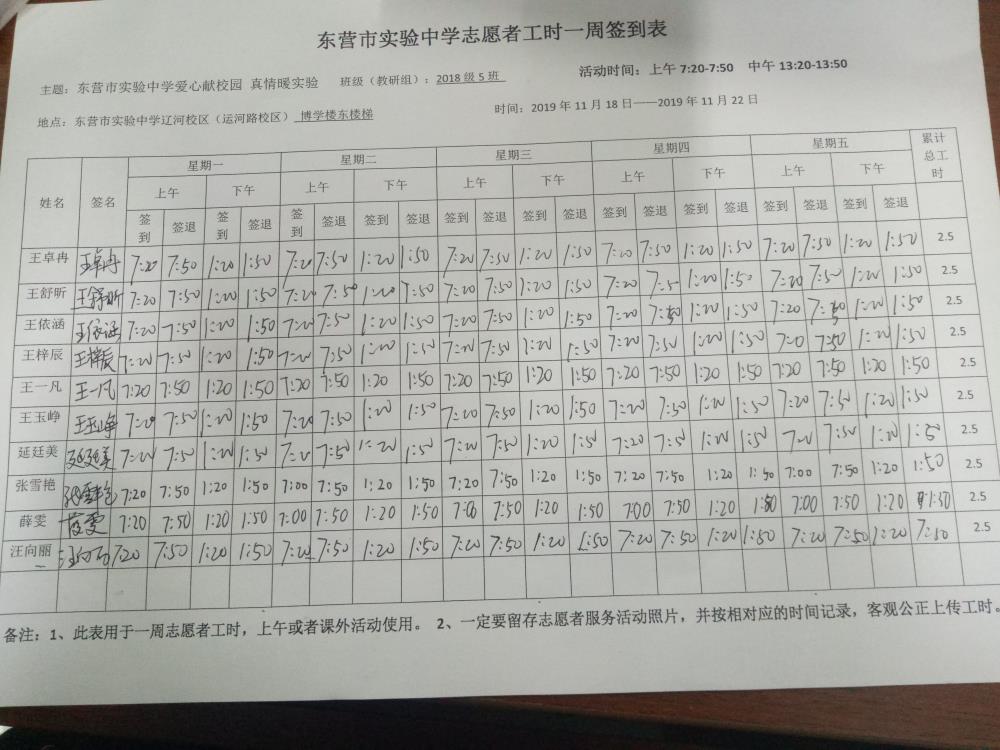 东营市实验中学志愿者工时一周签到表
主题：东营市实验中学爱心献校园 真情暖实验 班级（教研组）：2018级5班 活动时间：上午 7:20-7:50 中午 13:20-13:50
地点：东营市实验中学辽河校区（运河路校区） 博学楼东楼梯 时间：2019年11月18日——2019年11月22日
姓名 签名 星期一 星期二 星期三 星期四 星期五 累计总工时
上午 下午 上午 下午 上午 下午 上午 下午 上午 下午
签到 签退 签到 签退 签到 签退 签到 签退 签到 签退 签到 签退 签到 签退 签到 签退 签到 签退 签到 签退
王卓冉 王卓冉 7:20 7:50 1:20 1:50 7:20 7:50 1:20 1:50 7:20 7:50 1:20 1:50 7:20 7:50 1:20 1:50 7:20 7:50 1:20 1:50 2.5
王舒昕 王舒昕 7:20 7:50 1:20 1:50 7:20 7:50 1:20 1:50 7:20 7:50 1:20 1:50 7:20 7:5 1:20 1:50 7:20 7:50 1:20 1:50 2.5
王依涵 王依涵 7:20 7:50 1:20 1:50 7:20 7:50 1:20 1:50 7:20 7:50 1:20 1:50 7:20 7:50 1:20 1:50 7:20 7:50 1:20 1:50 2.5
王梓辰 王梓辰 7:20 7:50 1:20 1:50 7:20 7:50 1:20 1:50 7:20 7:50 1:20 1:50 7:20 7:50 1:20 1:50 7:20 7:50 1:20 1:50 2.5
王一凡 王一凡 7:20 7:50 1:20 1:50 7:20 7:50 1:20 1:50 7:20 7:50 1:20 1:50 7:20 7:50 1:20 1:50 7:20 7:50 1:20 1:50 2.5
王玉峥 王玉峥 7:20 7:50 1:20 1:50 7:20 7:50 1:20 1:50 7:20 7:50 1:20 1:50 7:20 7:50 1:20 1:50 7:20 7:50 1:20 1:50 2.5
延廷美 延廷美 7:20 7:50 1:20 1:50 7:20 7:50 1:20 1:50 7:20 7:50 1:20 1:50 7:20 7:50 1:20 1:50 7:20 7:50 1:20 1:50 2.5
张雪艳 张雪艳 7:20 7:50 1:20 1:50 7:00 7:50 1:20 1:50 7:20 7:50 1:20 1:50 7:20 7:50 1:20 1:50 7:00 7:50 1:20 1:50 2.5
薛雯 薛雯 7:20 7:50 1:20 1:50 7:00 7:50 1:20 1:50 7:00 7:50 1:20 1:50 7:00 7:50 1:20 1:50 7:00 7:50 1:20 1:50 2.5
汪向丽 汪向丽 7:20 7:50 1:20 1:50 7:20 7:50 1:20 1:50 7:20 7:50 1:20 1:50 7:20 7:50 1:20 1:50 7:20 7:50 1:20 7:50 2.5
备注：1、此表用于一周志愿者工时，上午或者课外活动使用。 2、一定要留存志愿者服务活动照片，并按相对应的时间记录，客观公正上传工时。